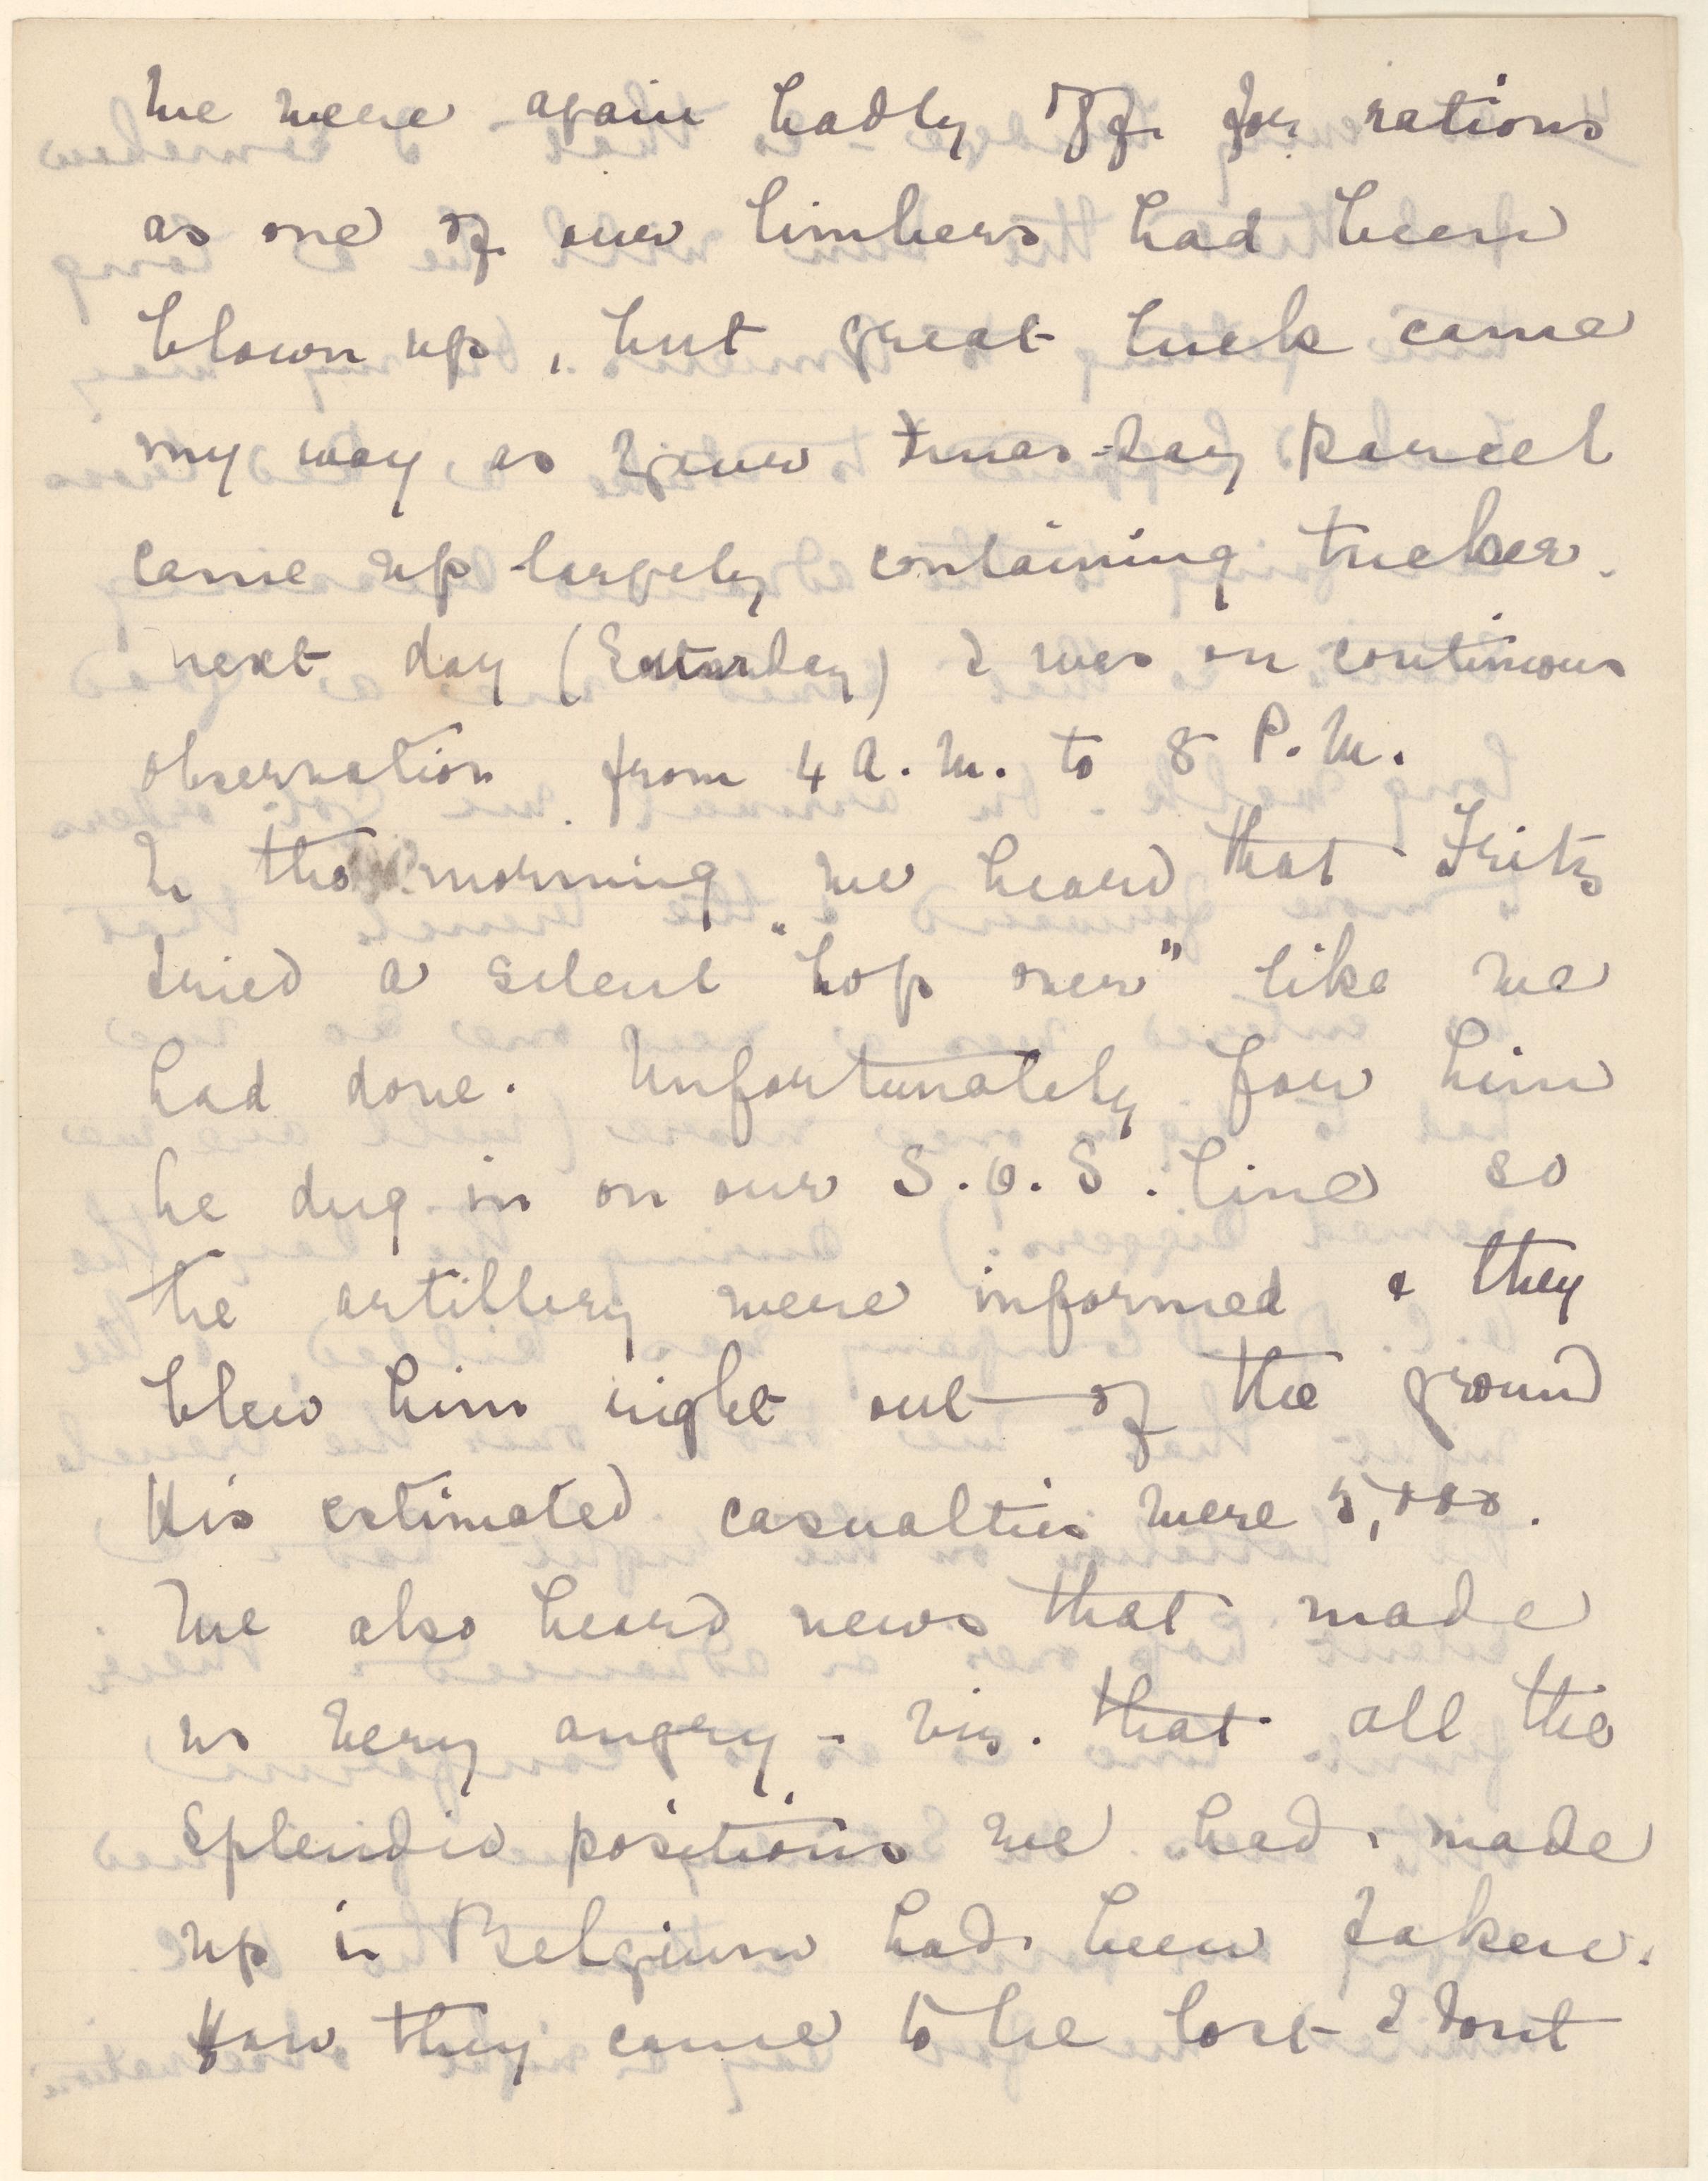 We were again badly off for rations
as one of our limbers had been
blown up, but great luck came
my way as your Xmas-day parcel
came up largely containing tucker.
next day (Saturday) I was on continuous
observation from 4 A.M. to 8 P.M.
In the morning we heard that Fritz
tried a silent "hop over" like we
had done. Unfortunately for him
he dug in on our S.O.S. line so
the artillery were informed & they
blew him right out of the ground
His estimated casualties were 5,000.
We also heard news that made
us very angry - viz. that all the
splendid positions we had made
up in Belgium had been taken.
How they came to be lost I dont